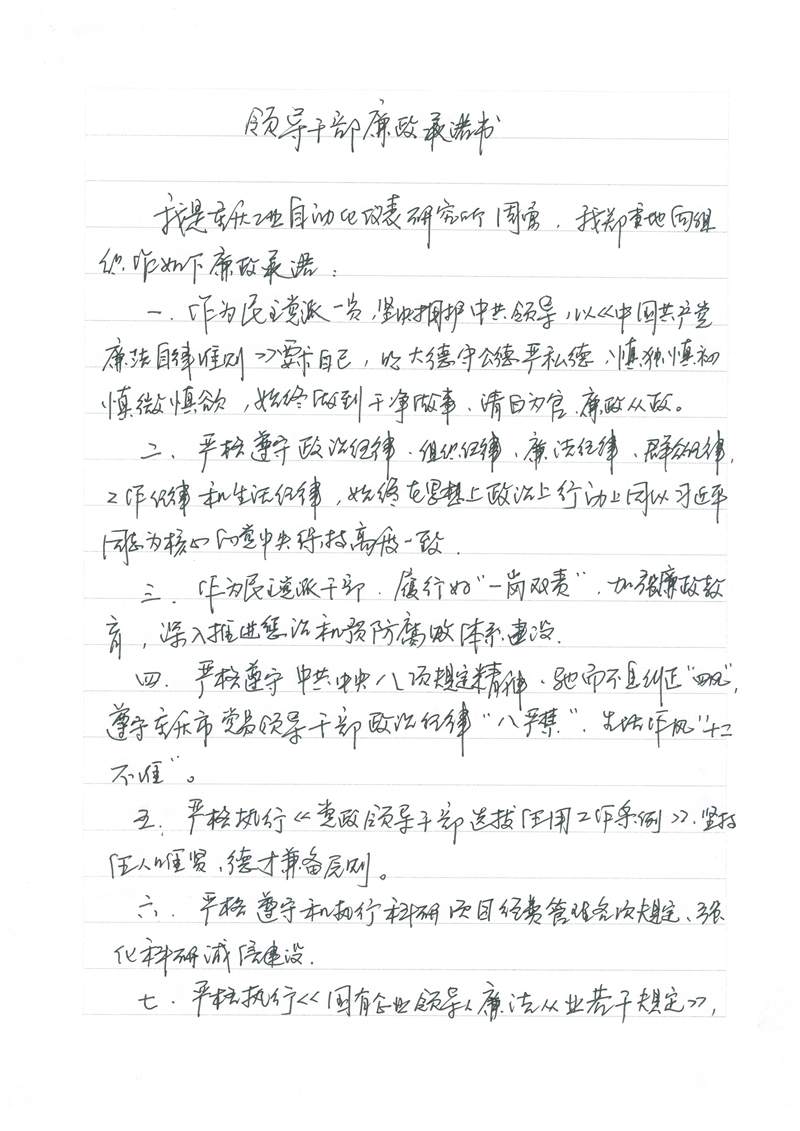 领导干部廉政承诺书
我是重庆工业自动化仪表研究所周勇，我郑重地向组
织作如下廉政承诺：
一、作为民主党派一员，坚决拥护中共领导，以《中国共产党
廉洁自律准则》要求自己，明大德守公德严私德，慎独慎初
慎微慎欲，始终做到干净做事、清白为官、廉政从政。
二、严格遵守政治纪律、组织纪律、廉洁纪律、群众纪律、
工作纪律和生活纪律，始终在思想上政治上行动上同以习近平
同志为核心的党中央保持高度一致.
三、作为民主党派干部，履行好“一岗双责”，加强廉政教
育，深入推进惩治和预防腐败体系建设.
四、严格遵守中共中央八项规定精神，驰而不息纠正“四风”，
遵守重庆市党员领导干部政治纪律“八严禁”、生活作风“十二
不准”。
五、严格执行《党政领导干部选拔任用工作条例》，坚持
任人唯贤、德才兼备原则。
六、严格遵守和执行科研项目经费管理各项规定、强
化科研诚信建设.
七、严格执行《国有企业领导人廉洁从业若干规定》，